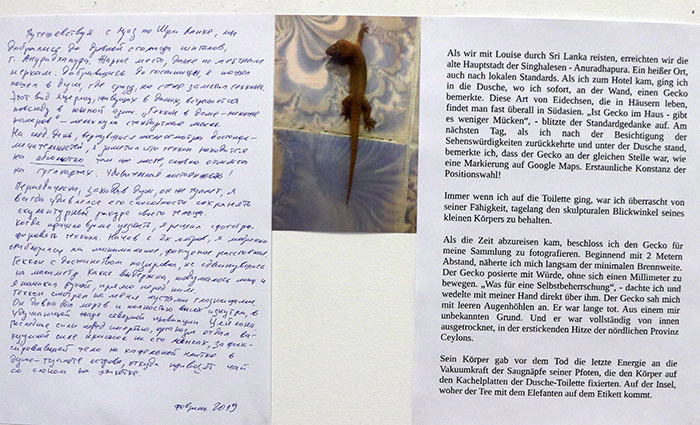 Путешествуя с Луиз по Шри Ланке, мы
добрались до древней столицы сингалов,
г. Анурадхапура. Жаркое место, даже по местным
меркам. Добравшись до гостиницы, я
пошел в душ, где сразу, на стене заметил геккона.
Этот вид ящериц, живущих в домах, встречается
повсюду в южной Азии. „Геккон в доме - меньше
комаров" - мелькнула стандартная мысль.
На след день, вернувшись после осмотра достопри-
мечательностей, я заметил что геккон находится
на том же месте, словно отметка
на гуглкартах. Удивительное постоянство!
Периодически, заходя в душ, он же туалет, я
всегда удивлялся его способности сохранять
скульптурный ракурс своего тельца.
Когда пришло время уезжать, я решил сфотогра-
фировать геккона. Начав с 2х метров, я медленно
приблизился на минимальное, фокусное расстояние.
Геккон с достоинством позировал, не сдвинувшись
на миллиметр. Какая выдержка, подумалось мне и
я помахал рукой, прямо перед ним.
Геккон смотрел на меня пустыми глазницами.
Он давно был мертв и полностью высох изнутри, в
удушающей жаре северной провинции Цейлона.
Последние силы перед смертью, организм отдал ва-
куумной силе присосок на его лапках, за фик-
сировавшей тело на кафельной плитке в
душе-туалете острова, откуда привозят чай
со слоном на этикетке.
февраль 2019
Als wir mit Louise durch Sri Lanka reisten, erreichten wir die
alte Hauptstadt der Singhalesen - Anuradhapura. Ein heißer Ort,
auch nach lokalen Standards. Als ich zum Hotel kam, ging ich
in die Dusche, wo ich sofort, an der Wand, einen Gecko
bemerkte. Diese Art von Eidechsen, die in Häusern leben,
findet man fast überall in Südasien. „Ist Gecko im Haus - gibt
es weniger Mücken“, - blitzte der Standardgedanke auf. Am
nächsten Tag, als ich nach der Besichtigung der
Sehenswürdigkeiten zurückkehrte und unter der Dusche stand,
bemerkte ich, dass der Gecko an der gleichen Stelle war, wie
eine Markierung auf Google Maps. Erstaunliche Konstanz der
Positionswahl!
Immer wenn ich auf die Toilette ging, war ich überrascht von
seiner Fähigkeit, tagelang den skulpturalen Blickwinkel seines
kleinen Körpers zu behalten.
Als die Zeit abzureisen kam, beschloss ich den Gecko für
meine Sammlung zu fotografieren. Beginnend mit 2 Metern
Abstand, näherte ich mich langsam der minimalen Brennweite.
Der Gecko posierte mit Würde, ohne sich einen Millimeter zu
bewegen. „Was für eine Selbstbeherrschung“, - dachte ich und
wedelte mit meiner Hand direkt über ihm. Der Gecko sah mich
mit leeren Augenhöhlen an. Er war lange tot. Aus einem mir
unbekannten Grund. Und er war vollständig von innen
ausgetrocknet, in der erstickenden Hitze der nördlichen Provinz
Ceylons.
Sein Körper gab vor dem Tod die letzte Energie an die
Vakuumkraft der Saugnäpfe seiner Pfoten, die den Körper auf
den Kachelplatten der Dusche-Toilette fixierten. Auf der Insel,
woher der Tee mit dem Elefanten auf dem Etikett kommt.